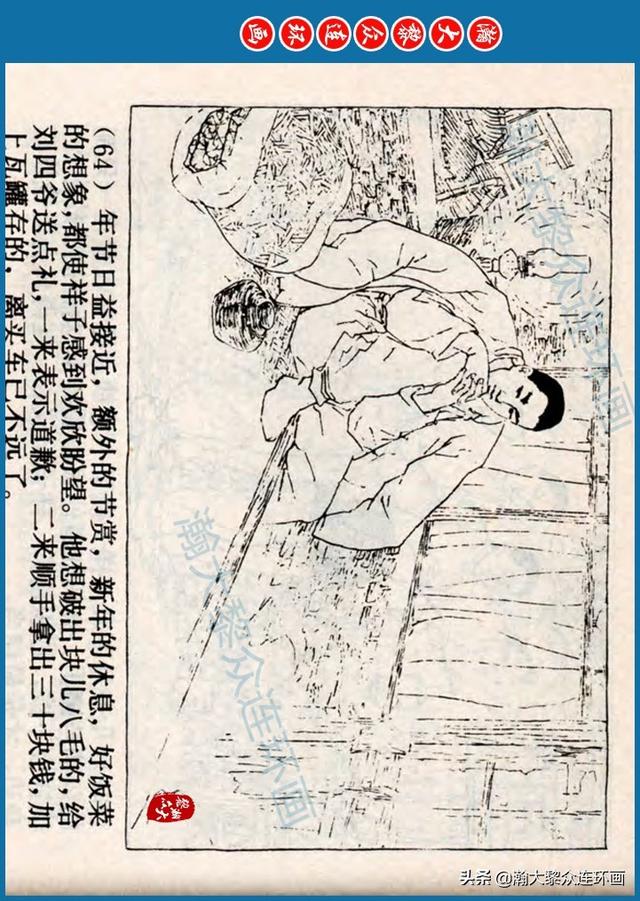 瀚大黎众连环画
(64)年节日益接近，额外的节赏，新年的休息，好饭菜
的想象，都使祥子感到欢欣盼望。他想破出块儿八毛的，给
刘四爷送点礼，一来表示道歉；二来顺手拿出三十块钱，加
上瓦罐存的，离买车已不远了。
瀚大黎众连环画
瀚大黎众连环画
瀚大黎众
头条 @瀚大黎众连环画